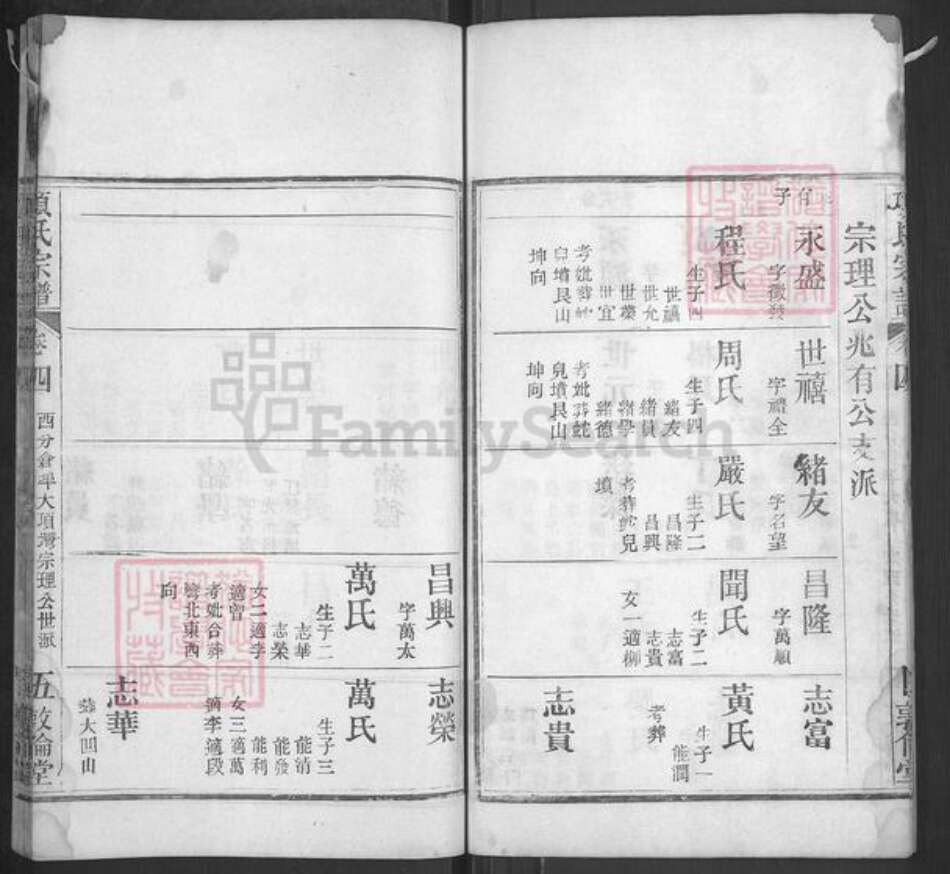 宗理公兆有公支派
子
永盛
字徵發
程氏
生子四
世禧
世允
世榮
世宜
考妣葬蛇
皃墳艮山
坤向
世禧
字禮全
周氏
生子四
緒友
緒員
緒學
緒德
考妣葬蛇
皃墳艮山
坤向
緒友
字名望
嚴氏
生子二
昌隆
昌興
考葬蛇兒
墳
昌隆
字萬順
聞氏
生子二
志富
志貴
女一適柳
志富
黃氏
生子一
能潤
考葬
志貴
昌興
字萬太
萬氏
生子二
志華
志榮
女二適李
適曾
考妣合葬
灣北東西
向
志榮
萬氏
生子三
能清
能發
能利
女三適萬
適李適段
志華
葬大凹山
項氏宗譜
卷四
西分倉埠大項灣宗理公世派
五
敦倫堂
FamilySearch